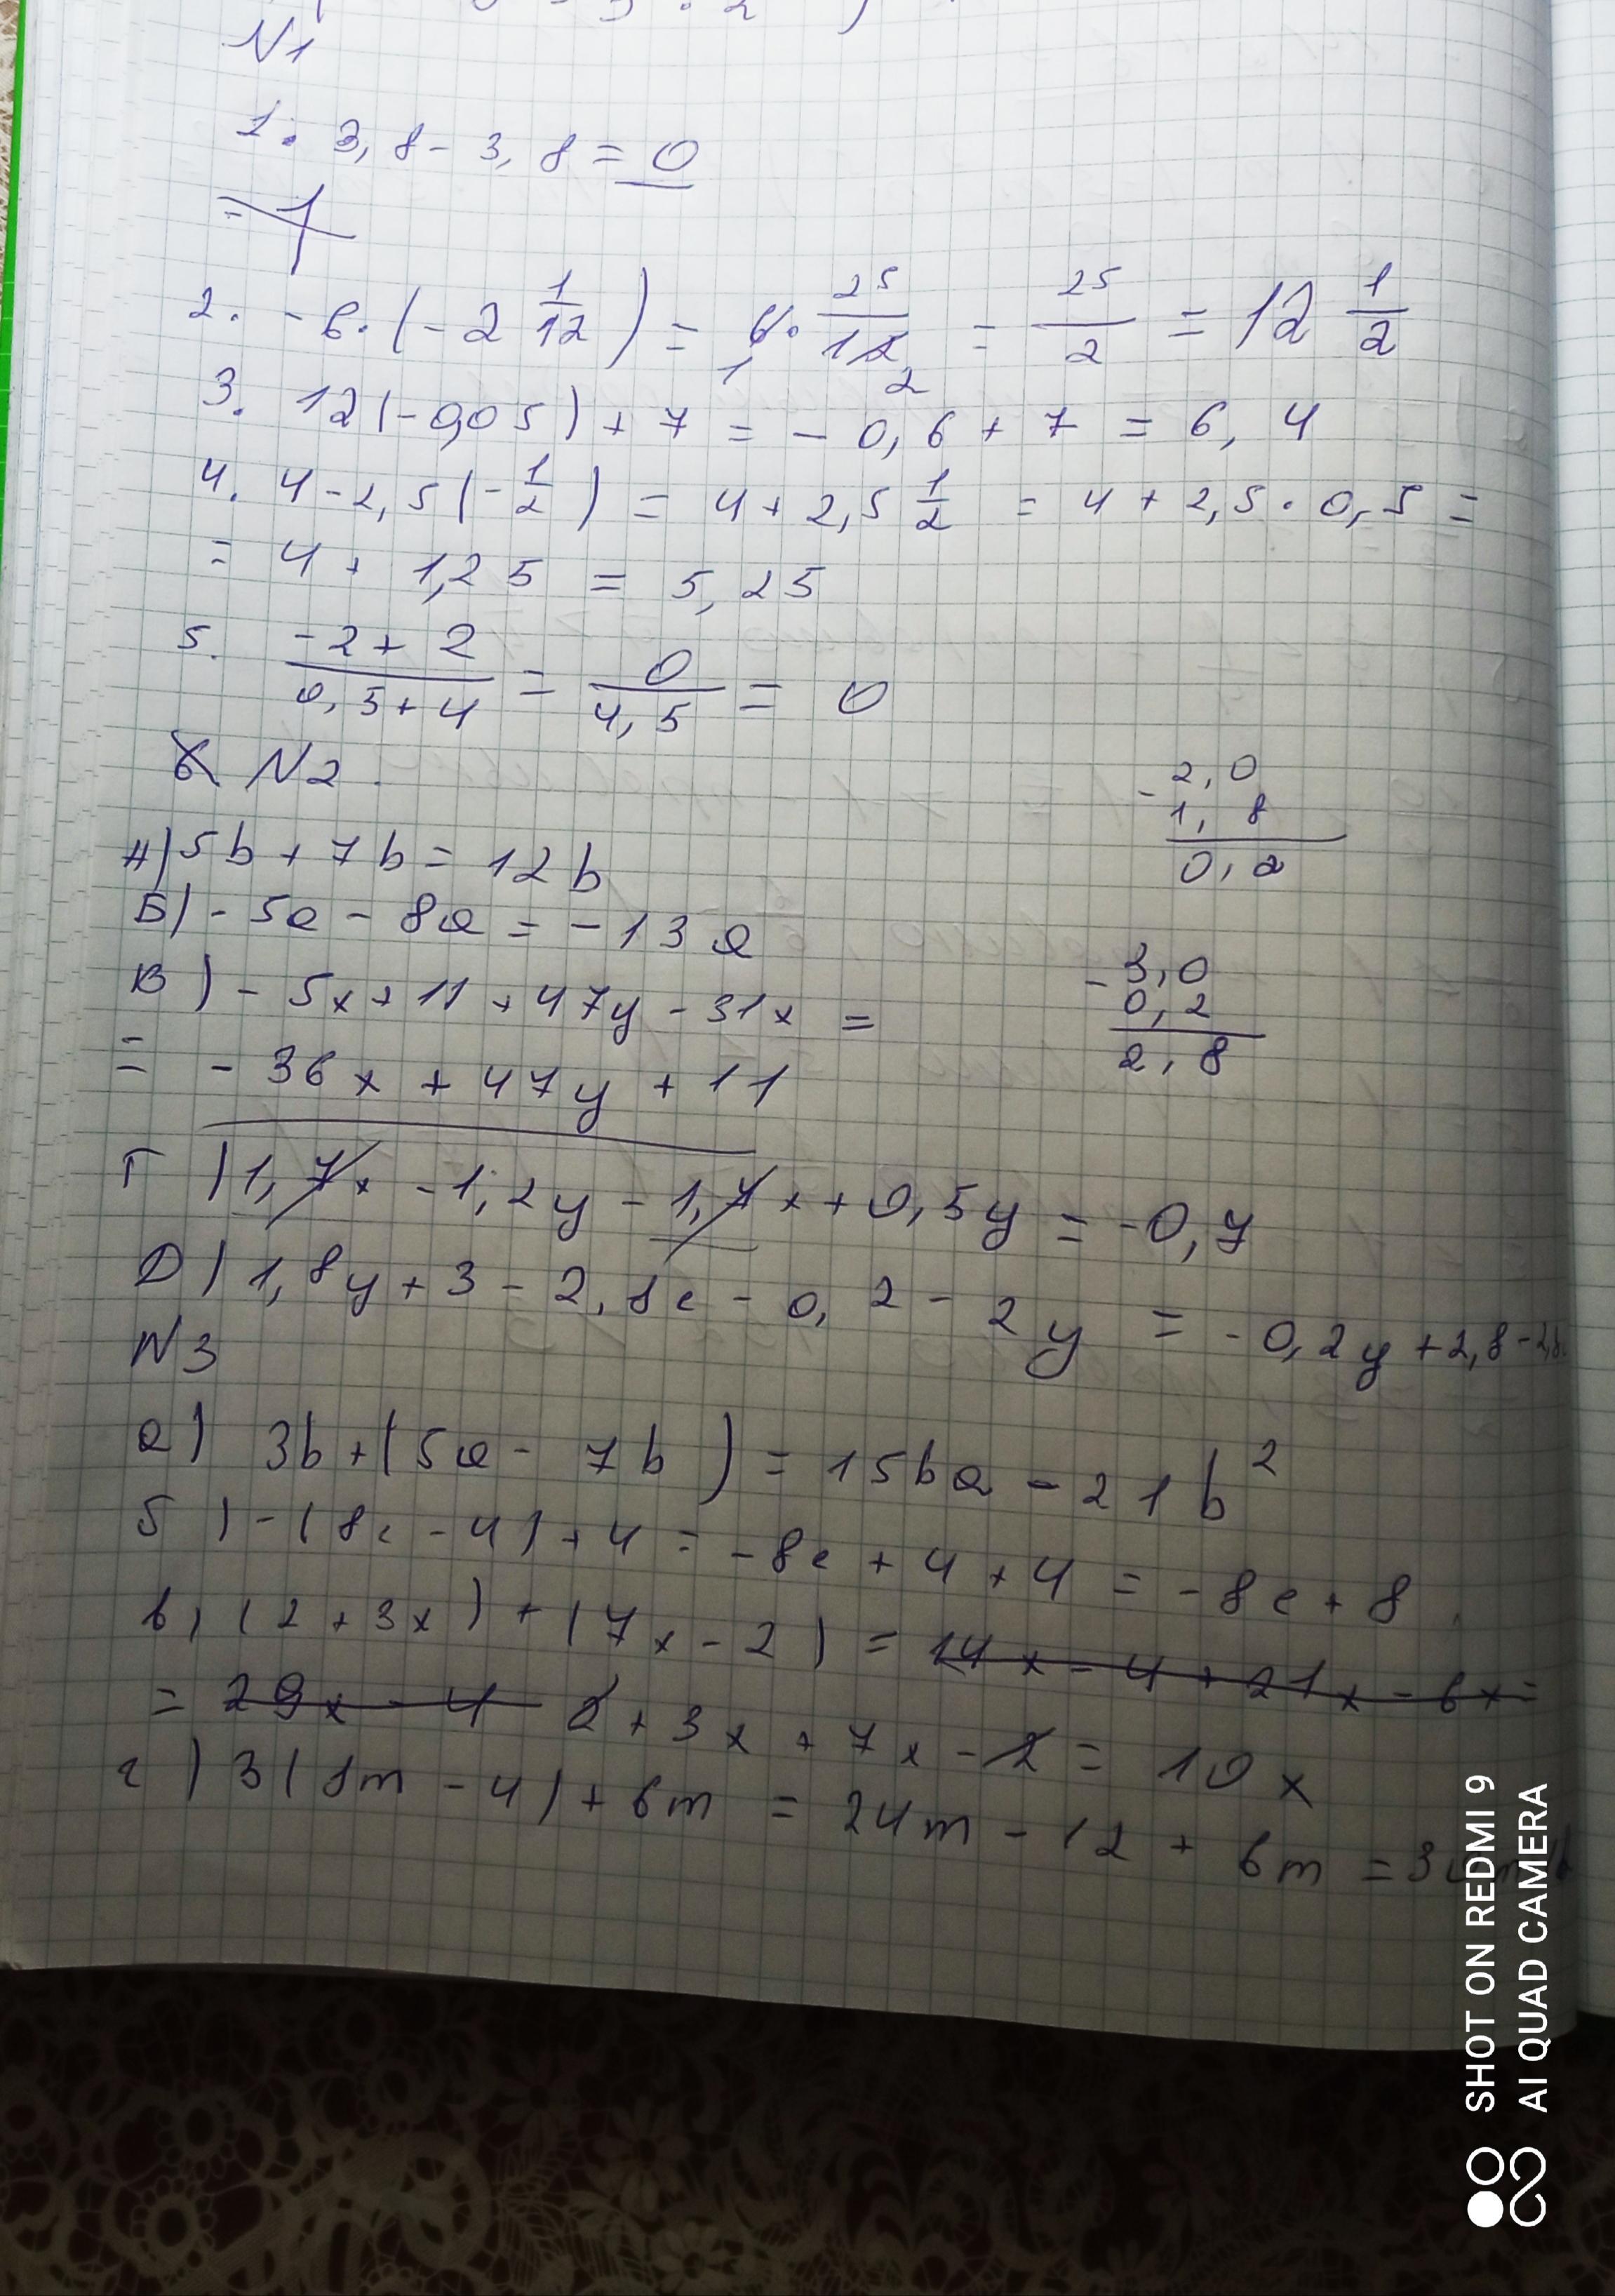 N1
1. 3,8 - 3,8 = 0
2. -6·(-2 1/12) = 6· 25/12 = 25/2 = 12 1/2
3. 12(-0,05) + 7 = -0,6 + 7 = 6,4
4. 4 - 2,5(-1/2) = 4 + 2,5 1/2 = 4 + 2,5 · 0,5 =
= 4 + 1,25 = 5,25
5. -2+2/0,5+4 = 0/4,5 = 0
N2.
2,0
- 1,8
0,2
А) 5b + 7b = 12b
Б) -5a - 8a = -13a
В) -5x + 11 + 47y - 31x =
= -36x + 47y + 11
- 3,0
0,2
2,8
Г) 1,7x - 1,2y - 1,7x + 0,5y = -0,7
Д) 1,8y + 3 - 2,8c - 0,2 - 2y = -0,2y + 2,8 - 2,8
N3
а) 3b + (5a - 7b) = 15ba - 21b²
б) -(8c - 4) + 4 = -8c + 4 + 4 = -8c + 8
в) (2 + 3x) + (7x - 2) = 14x - 4 + 21x - 6x =
= 29x - 4 2 + 3x + 7x - 2 = 10x
г) 3(8m - 4) + 6m = 24m - 12 + 6m =
SHOT ON REDMI 9
AI QUAD CAMERA